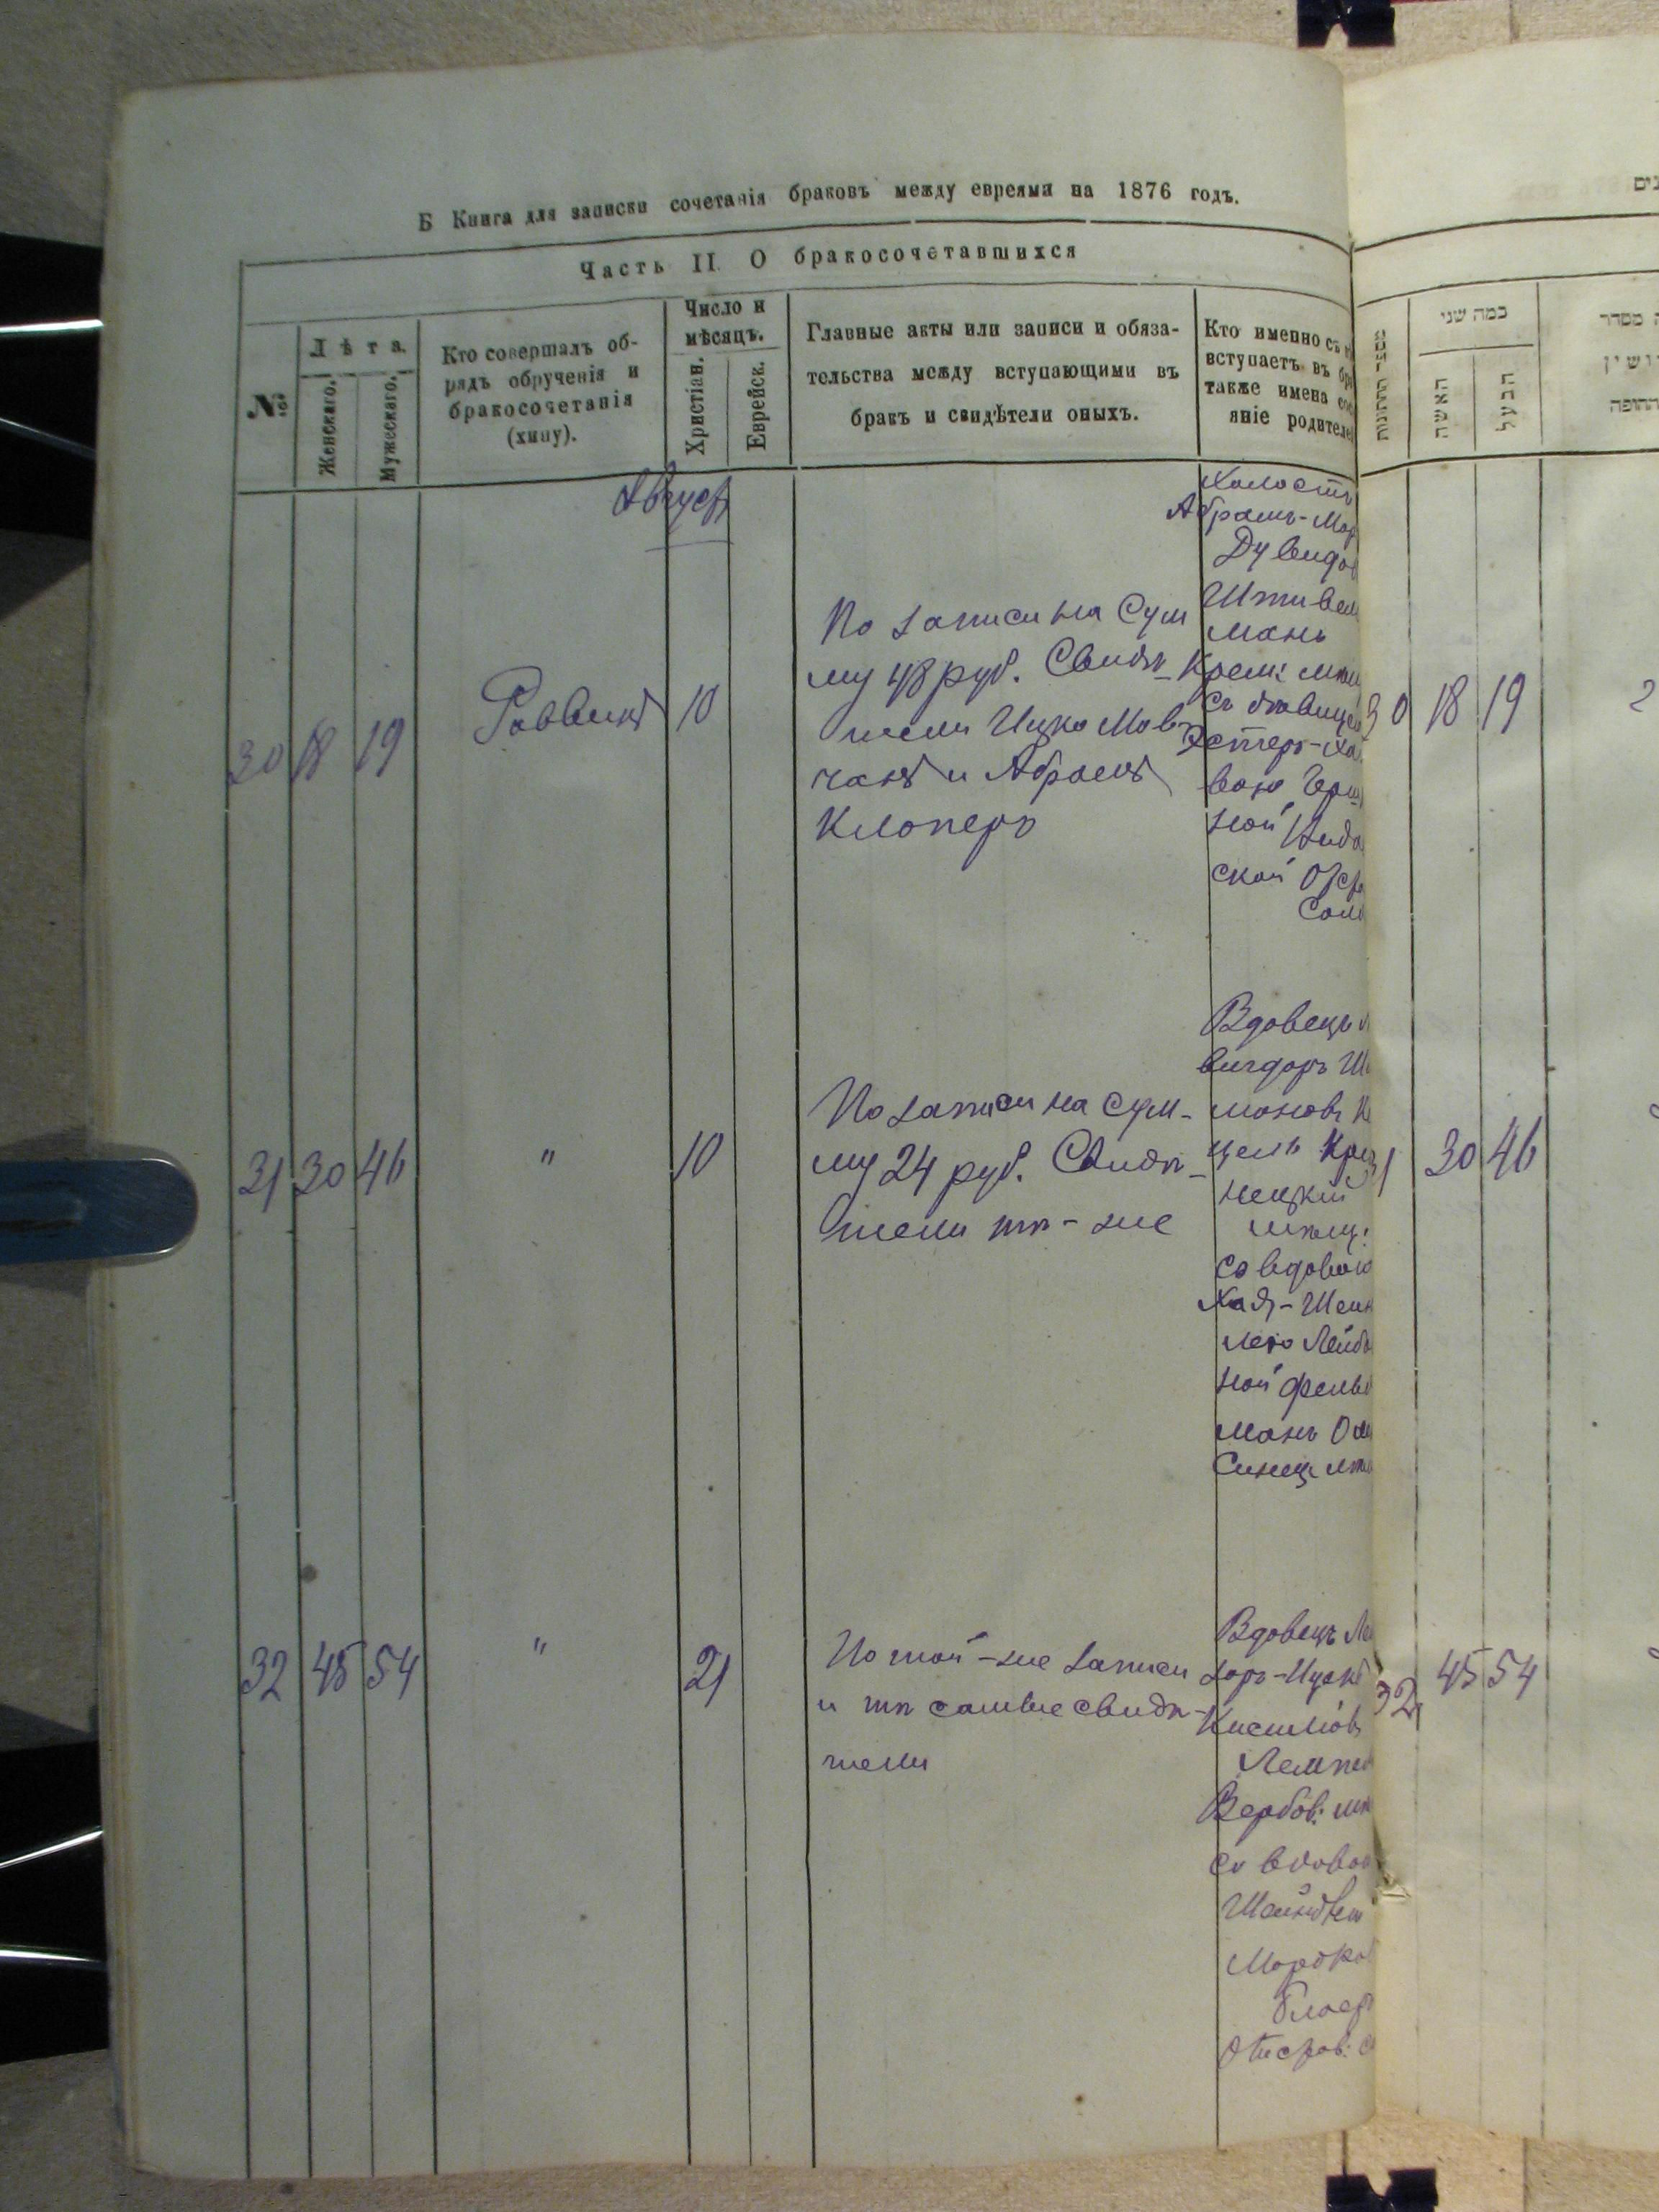 Б Книга для записки сочетанія браковъ между евреями на 1876 годъ.
Часть II О бракосочетавшихся
№
Лѣта.
Женскаго.
Мужескаго.
Кто совершалъ об-
рядъ обрученія и
бракосочетанія
(хипу).
Число и
мѣсяцъ.
Христіан.
Еврейск.
Главные акты или записи и обяза-
тельства между вступающими въ
бракъ и свидѣтели оныхъ.
Кто именно съ
вступаетъ въ
также имена
яніе родителе
Августъ
30 18 19
Раввинъ
10
По записи на Сум
му 48 руб. Свидѣ-
тели Ицко Мов
чанъ и Абрамъ
Клоперъ
Холостъ
Абрамъ-Мор
Дувидов
Штивель
манъ
Крем: мѣщ
съ дѣвицей
Эстеръ-Ха
вою Герш
ной
ской
31 30 46
"
10
По записи на Сум-
му 24 руб. Свидѣ-
тели тѣ-же
Вдовецъ
вигдоръ
моновъ
цель Крем
нецкій
мѣщ:
со вдовою
Хая-Шейн
лею Лейбо
ной Фельд
манъ
32 45 54
"
21
По той-же записи
и тѣ самые свидѣ-
тели
Вдовецъ Ле
зоръ-Ицокъ
Кисилiовъ
Лемпе
Вербов: мѣ
со вдовою
Шейндлею
Мордко
Остров:
מספר החתונות
כמה שני
האשה
הבעל
מסדר
החופה
30 18 19
31 30 46
32 45 54